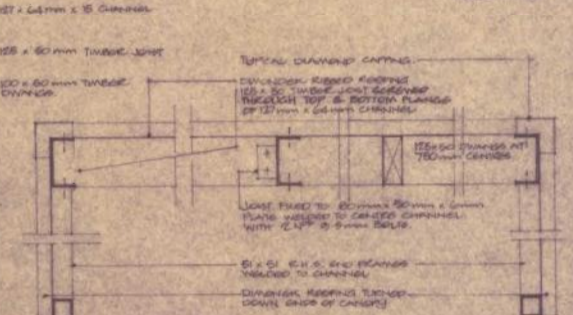 127 x 64mm x 15 CHANNEL
125 x 50 mm TIMBER JOIST
100 x 50 mm TIMBER
DWANGS.
TYPICAL DIAMOND CAPPING
RIBBED ROOFING
125 x 50 TIMBER JOIST SCREWED
THROUGH TOP & BOTTOM FLANGE
OF 127mm x 64mm CHANNEL
125x50 DWANGS AT
750mm CENTRES
JOIST FIXED TO 80mm x 50mm x 6mm
PLATE WELDED TO CENTRE CHANNEL
WITH 2 Nº BOLTS.
51 x 51 R.H.S. END FRAMES
WELDED TO CHANNEL
ROOFING TURNED
DOWN ENDS OF CANOPY